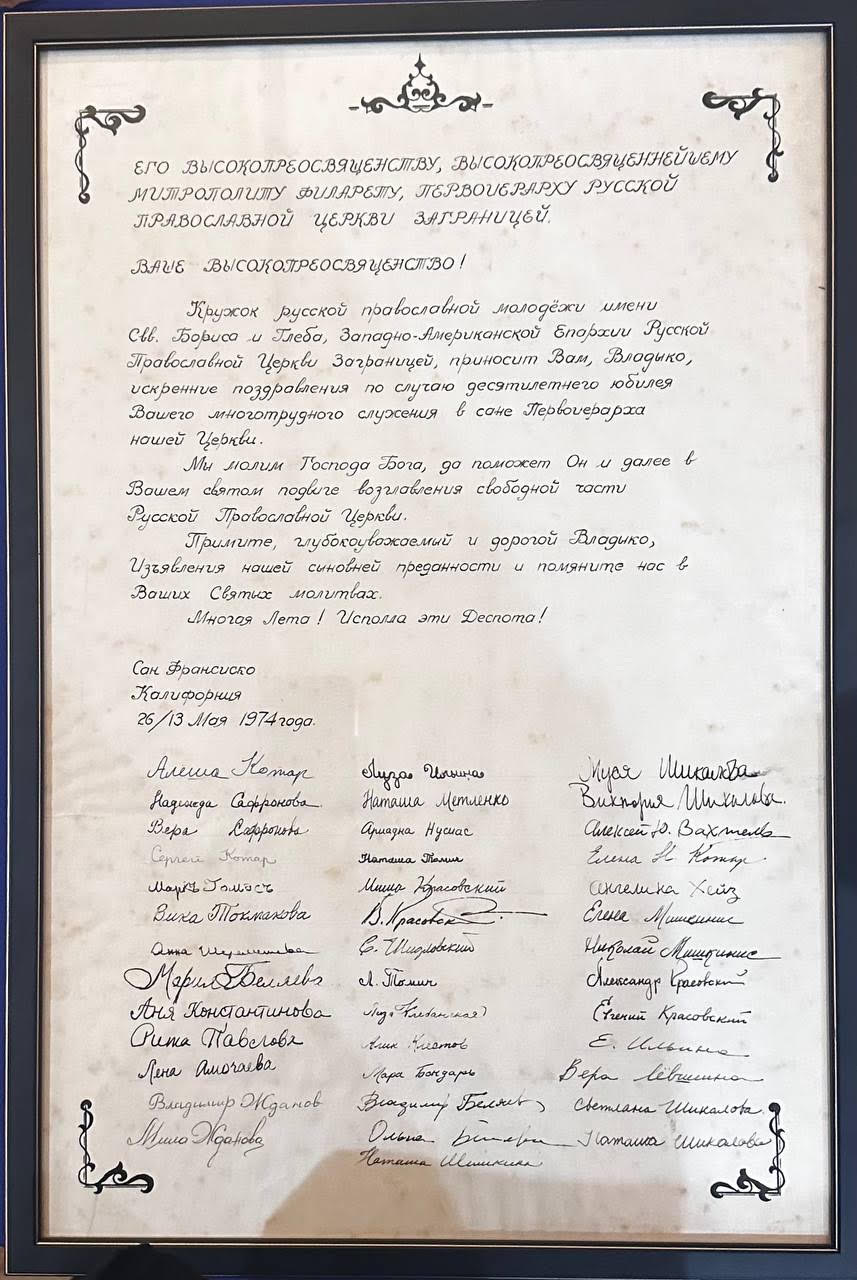 ЕГО ВЫСОКОПРЕОСВЯЩЕНСТВУ, ВЫСОКОПРЕОСВЯЩЕННЕЙШЕМУ
МИТРОПОЛИТУ ФИЛАРЕТУ, ПЕРВОИЕРАРХУ РУССКОЙ
ПРАВОСЛАВНОЙ ЦЕРКВИ ЗАГРАНИЦЕЙ.
ВАШЕ ВЫСОКОПРЕОСВЯЩЕНСТВО!
Кружок русской православной молодёжи имени
Свв. Бориса и Глеба, Западно-Американской Епархии Русской
Православной Церкви Заграницей, приносит Вам, Владыко,
искренние поздравления по случаю десятилетнего юбилея
Вашего многотрудного служения в сане Первоиерарха
нашей Церкви.
Мы молим Господа Бога, да поможет Он и далее в
Вашем святом подвиге возглавления свободной части
Русской Православной Церкви.
Примите, глубокоуважаемый и дорогой Владыко,
Изъявления нашей сыновней преданности и помяните нас в
Ваших Святых молитвах.
Многая Лета! Исполла эти Деспота!
Сан Франсиско
Калифорния
26/13 Мая 1974 года.
Алеша Котар
Надежда Сафронова
Вера Сафронова
Сергей Котар
Маркъ Гомесъ
Вика Токмакова
Анна
Мария Беляева
Аня Константинова
Рита Павслова
Лена Амочаева
Владимир Жданов
Мила Жданова
Луза Ильина
Наташа Метленко
Ариадна Нусиас
Наташа Томич
Миша Красовский
В. Красовск
С. Шидловский
Л. Томич
Лиза
Алик
Мара Бондарь
Владимир Беляев
Ольга
Наташа Шишкина
Муся Шикалова
Виктория Шихалова.
Алексей Ю. Вахтель
Елена Н Котар.
Ангелина Хейз
Елена Мишкинис
Николай Мишкинис
Александр Красовский
Евгений Красовский
Е. Ильина
Вера Лёвшина
Светлана Шикалова.
Наташа Шикалова